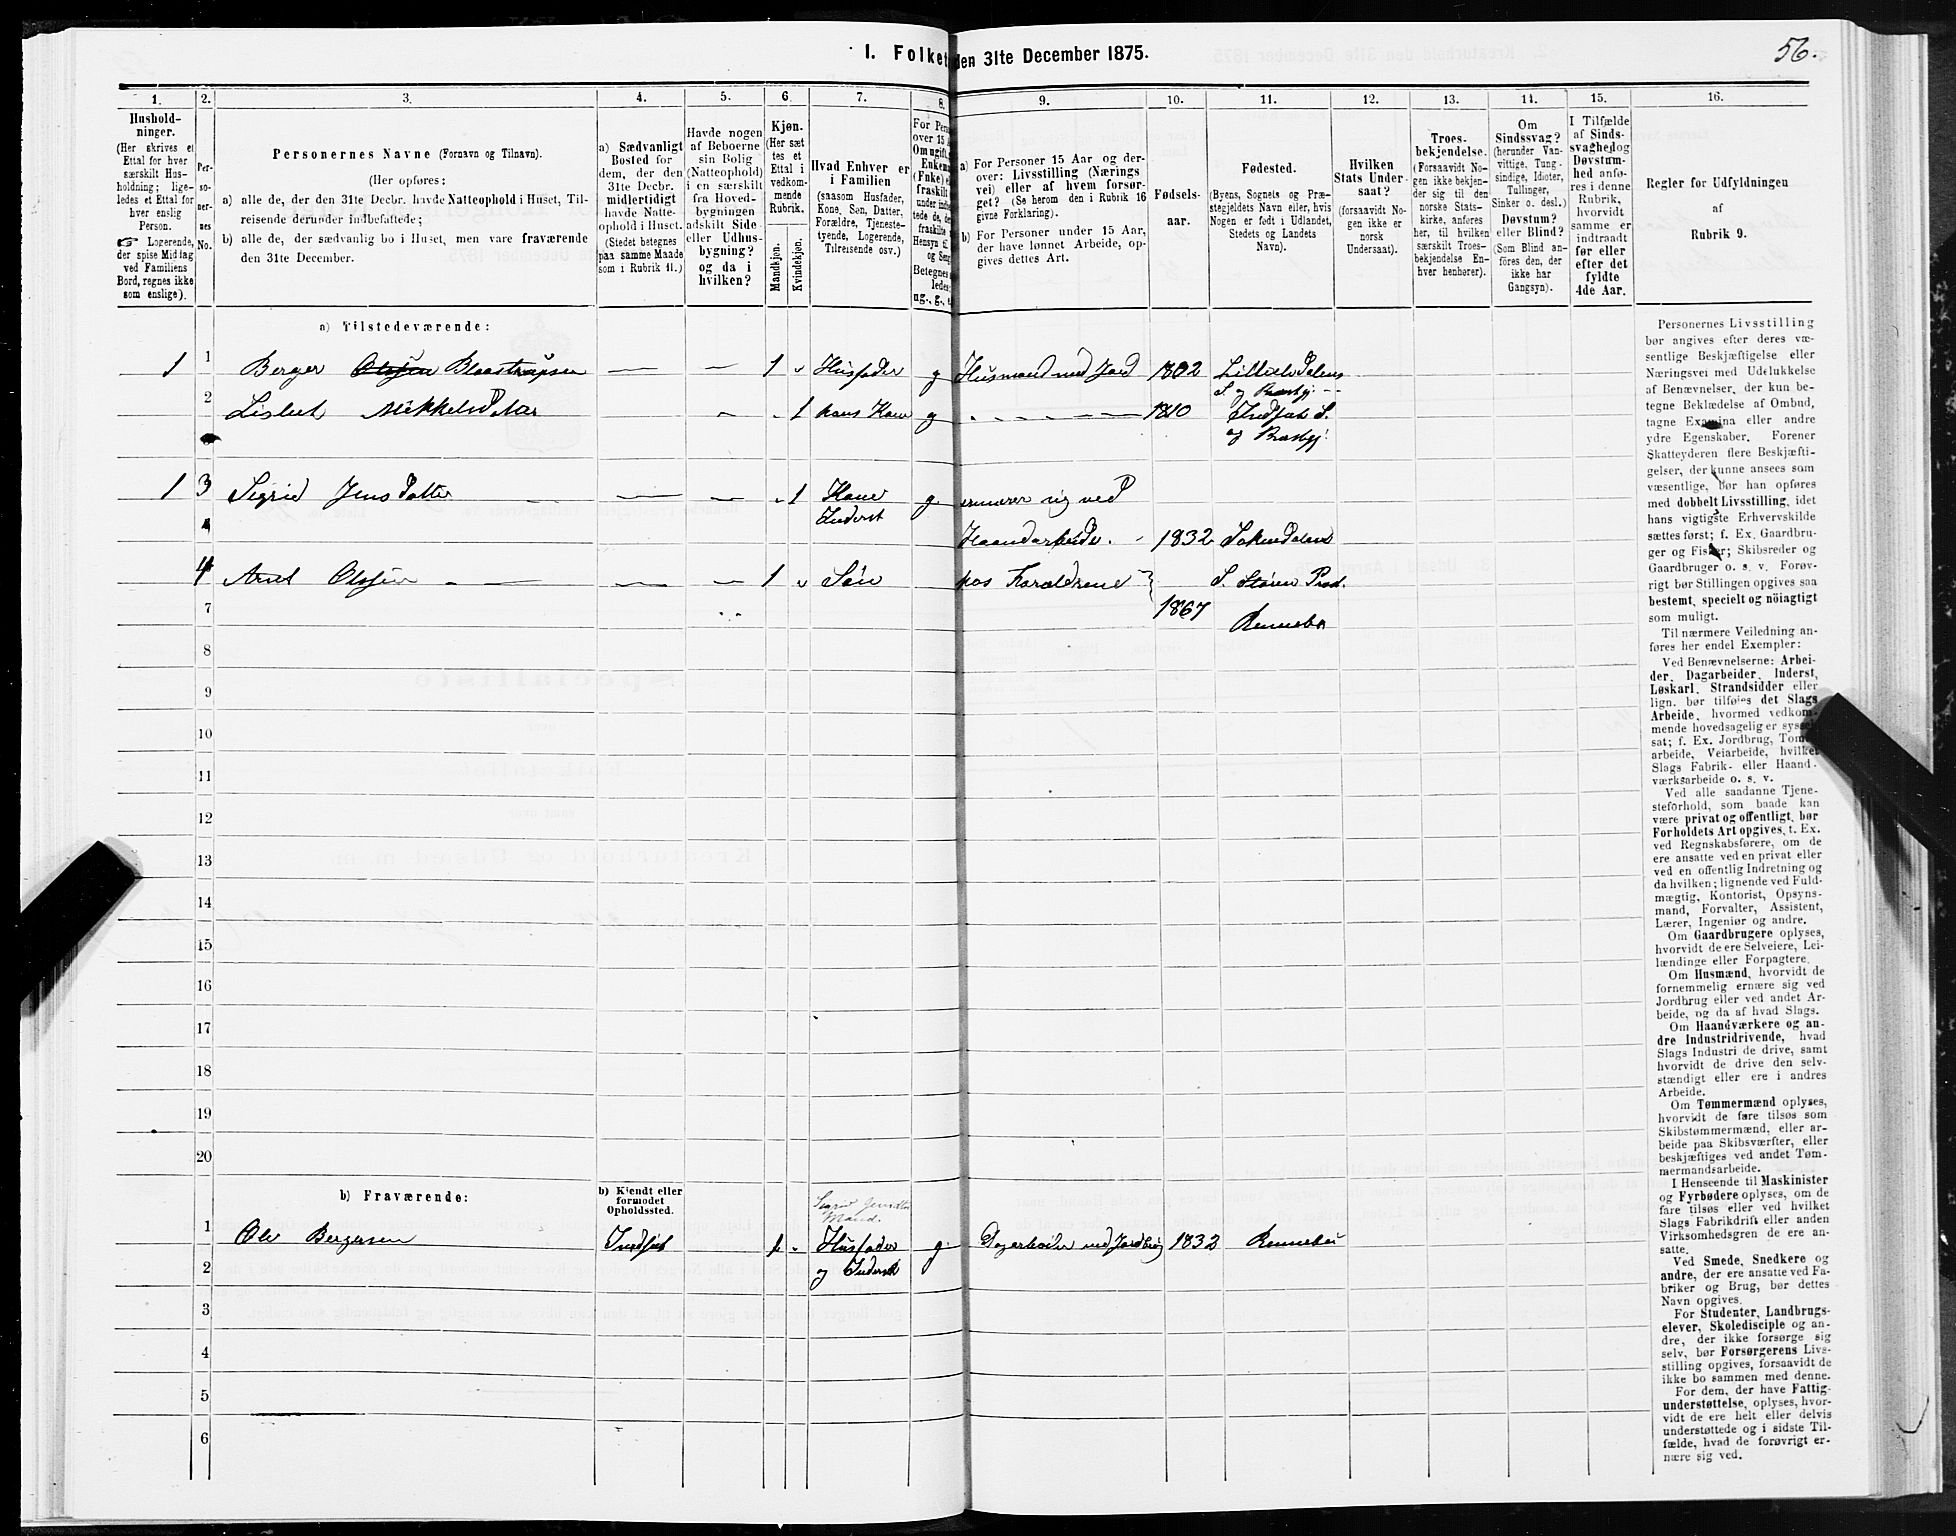 I. Folket den 31te December 1875.
56.
1.
2.
3.
4.
5.
6.
7.
8.
9.
10.
11.
12.
13.
14.
15.
16.
Hushold-
ninger.
(Her skrives et
Ettal for hver
særskilt Hus-
holdning; lige-
ledes et Ettal for
hver enslig
Person.
☞ Logerende,
der spise Middag
ved Familiens
Bord, regnes ikke
som enslige).
Per-
so-
ner-
nes
No.
Personernes Navne (Fornavn og Tilnavn).
(Her opføres:
a) alle de, der den 31te Decbr. havde Natteophold i Huset, Til-
reisende derunder indbefattede;
b) alle de, der sædvanlig bo i Huset, men vare fraværende
den 31te December.
a) Sædvanligt
Bosted for
dem, der den
31te Decbr.
midlertidigt
havde Natte-
ophold i Huset.
(Stedet betegnes
paa samme Maade
som i Rubrik 11.)
Havde nogen
af Beboerne
sin Bolig
(Natteophold)
i en særskilt
fra Hoved-
bygningen
adskilt Side
eller Udhus-
bygning?
og da i
hvilken?
Kjøn.
(Her sæt
tes et
Ettal i
vedkom-
mende
Rubrik.
Mandkjøn.
Kvindekjøn.
Hvad Enhver er
i Familien
(saasom Husfader,
Kone, Søn, Datter,
Forældre, Tjeneste-
tyende, Logerende,
Tilreisende osv.)
For Pers
over 15 a
Om ugift,
Enkem
(Enke) e
fraskilt
under indb
tede de, de
fraskilte
Hensyn til
og Seng
Betegnes
ledes:
ug., g., e.
a) For Personer 15 Aar og der-
over: Livsstilling (Nærings
vei) eller af hvem forsør-
get? (Se herom den i Rubrik 16
givne Forklaring).
b) For Personer under 15 Aar,
der have lønnet Arbeide, op-
gives dettes Art.
Fødsels-
aar.
Fødested.
(Byens, Sognets og Præ-
stegjeldets Navn eller, hvis
Nogen er født i Udlandet,
Stedets og Landets
Navn).
Hvilken
Stats Under-
saat?
(forsaavidt No-
gen ikke er
norsk
Undersaat).
Troes-
bekjendelse.
(Forsaavidt No-
gen ikke bekjen-
der sig til den
norske Stats-
kirke, anføres
her, til hvilken
særskilt Troes-
bekjendelse En-
hver henhører).
Om
Sindssvag?
(herunder Van-
vittige, Tung-
sindige, Idioter,
Tullinger,
Sinker o. desl.)
Døvstum?
eller Blind?
(Som Blind an-
føres den, der
ikke har
Gangsyn).
I Tilfælde
af Sinds-
svaghed og
Døvstum-
hed anfø-
res i denne
Rubrik,
hvorvidt
samme er
indtraadt
før eller
efter det
fyldte
4de Aar.
Regler for Udfyldningen
af
Rubrik 9.
a) Tilstedeværende:
1 1 Berger Olssen Blaastrøpsen — — 1 Husfader g Husmand med Jord 1802 Lilleelvdalens
S. og Præstgj.
2 Lisbet MikkelsDatar — 1 hans Kone g 1810 Indset S.
og Præstgj.
1 3 Sigrid JensDatter — — 1 Kone g ernærer sig ved
Inderst
Haandarbeide. 1832 Soknedalens
4 Arnt Olssen — — 1 Søn hos Forældrene S. Støren Præst.
7 1867 Rennebo
8
9
10
11
12
13
14
15
16
17
18
19
20
b) Fraværende:
b) Kjendt eller
formodet
Opholdssted.
Sigrid Jensdtr
Mand.
1 Ole Bergersen Indset 1 Husfader g. Dagarbeider med Jordbrug 1832 Rennebo
2 og Inderst
3
4
5
6
Personernes Livsstilling
bør angives efter deres væ-
sentlige Beskjæftigelse eller
Næringsvei med Udelukkelse
af Benævnelser, der kun be-
tegne Beklædelse af Ombud,
tagne Examina eller andre
ydre Egenskaber. Forener
Skatteyderen flere Beskjæfti-
gelser, der kunne ansees som
væsentlige, bør han opføres
med dobbelt Livsstilling, idet
hans vigtigste Erhvervskilde
sættes først; f. Ex. Gaardbru-
ger og Fisker; Skibsreder og
Gaardbruger o. s. v. Forøv-
rigt bør Stillingen opgives saa
bestemt, specielt og nöiagtigt
som muligt.
Til nærmere Veiledning an-
føres her endel Exempler:
Ved Benævnelserne: Arbei-
der, Dagarbeider, Inderst,
Løskarl, Strandsidder eller
lign. bør tilføies det Slags
Arbeide, hvormed vedkom-
mende hovedsagelig er syssel-
sat; f. Ex. Jordbrug, Tom
arbeide, Veiarbeide, hvilket
Slags Fabrik- eller Haand-
værksarbeide o. s. v.
Ved alle saadanne Tjene-
steforhold, som baade kan
være privat og offentligt, bør
Forholdets Art opgives, t. Ex.
ved Regnskabsførere, om de
ere ansatte ved en privat eller
ved en offentlig Indretning og
da hvilken; lignende ved Fuld-
mægtig, Kontorist, Opsyns-
mand, Forvalter, Assistent,
Lærer, Ingeniør og andre.
Om Gaardbrugere oplyses,
hvorvidt de ere Selveiere, Lei-
lændinge eller Forpagtere.
Om Husmænd, hvorvidt de
fornemmelig ernære sig ved
Jordbrug eller ved andet Ar-
beide, og da af hvad Slags.
Om Haandværkere og an-
dre Industridrivende, hvad
Slags Industri de drive, samt
hvorvidt de drive den selv-
stændigt eller ere i andres
Arbeide.
Om Tømmermænd oplyses,
hvorvidt de fare tilsøs som
Skibstømmermænd, eller ar-
beide paa Skibsværfter, eller
beskjæftiges ved andet Tøm-
mermandsarbeide.
I Henseende til Maskinister
og Fyrbødere oplyses, om de
fare tilsøs eller ved hvilket
Slags Fabrikdrift eller anden
Virksomhedsgren de ere an-
satte.
Ved Smede, Snedkere og
andre, der ere ansatte ved Fa-
briker og Brug, bør dettes
Navn opgives.
For Studenter, Landbrugs-
elever, Skoledisciple og an-
dre, der ikke forsørge sig
selv, bør Forsørgerens Livs-
stilling opgives, forsaavidt de
ikke bo sammen med denne.
For dem, der have Fattig-
understøttelse, oplyses, hvor-
vidt de ere helt eller delvis
understøttede og i sidste Til-
fælde, hvad de forøvrigt er-
nære sig ved.